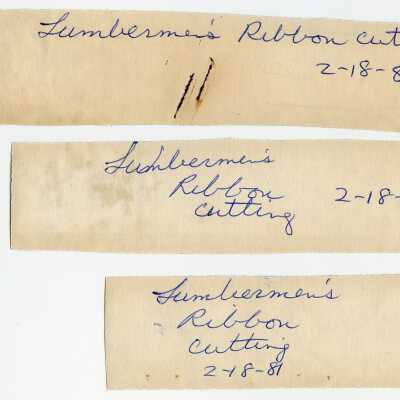 Lumbermen's Ribbon cut
2-18-8
Lumbermen's
Ribbon 2-18-
cutting
Lumbermen's
Ribbon
cutting
2-18-81